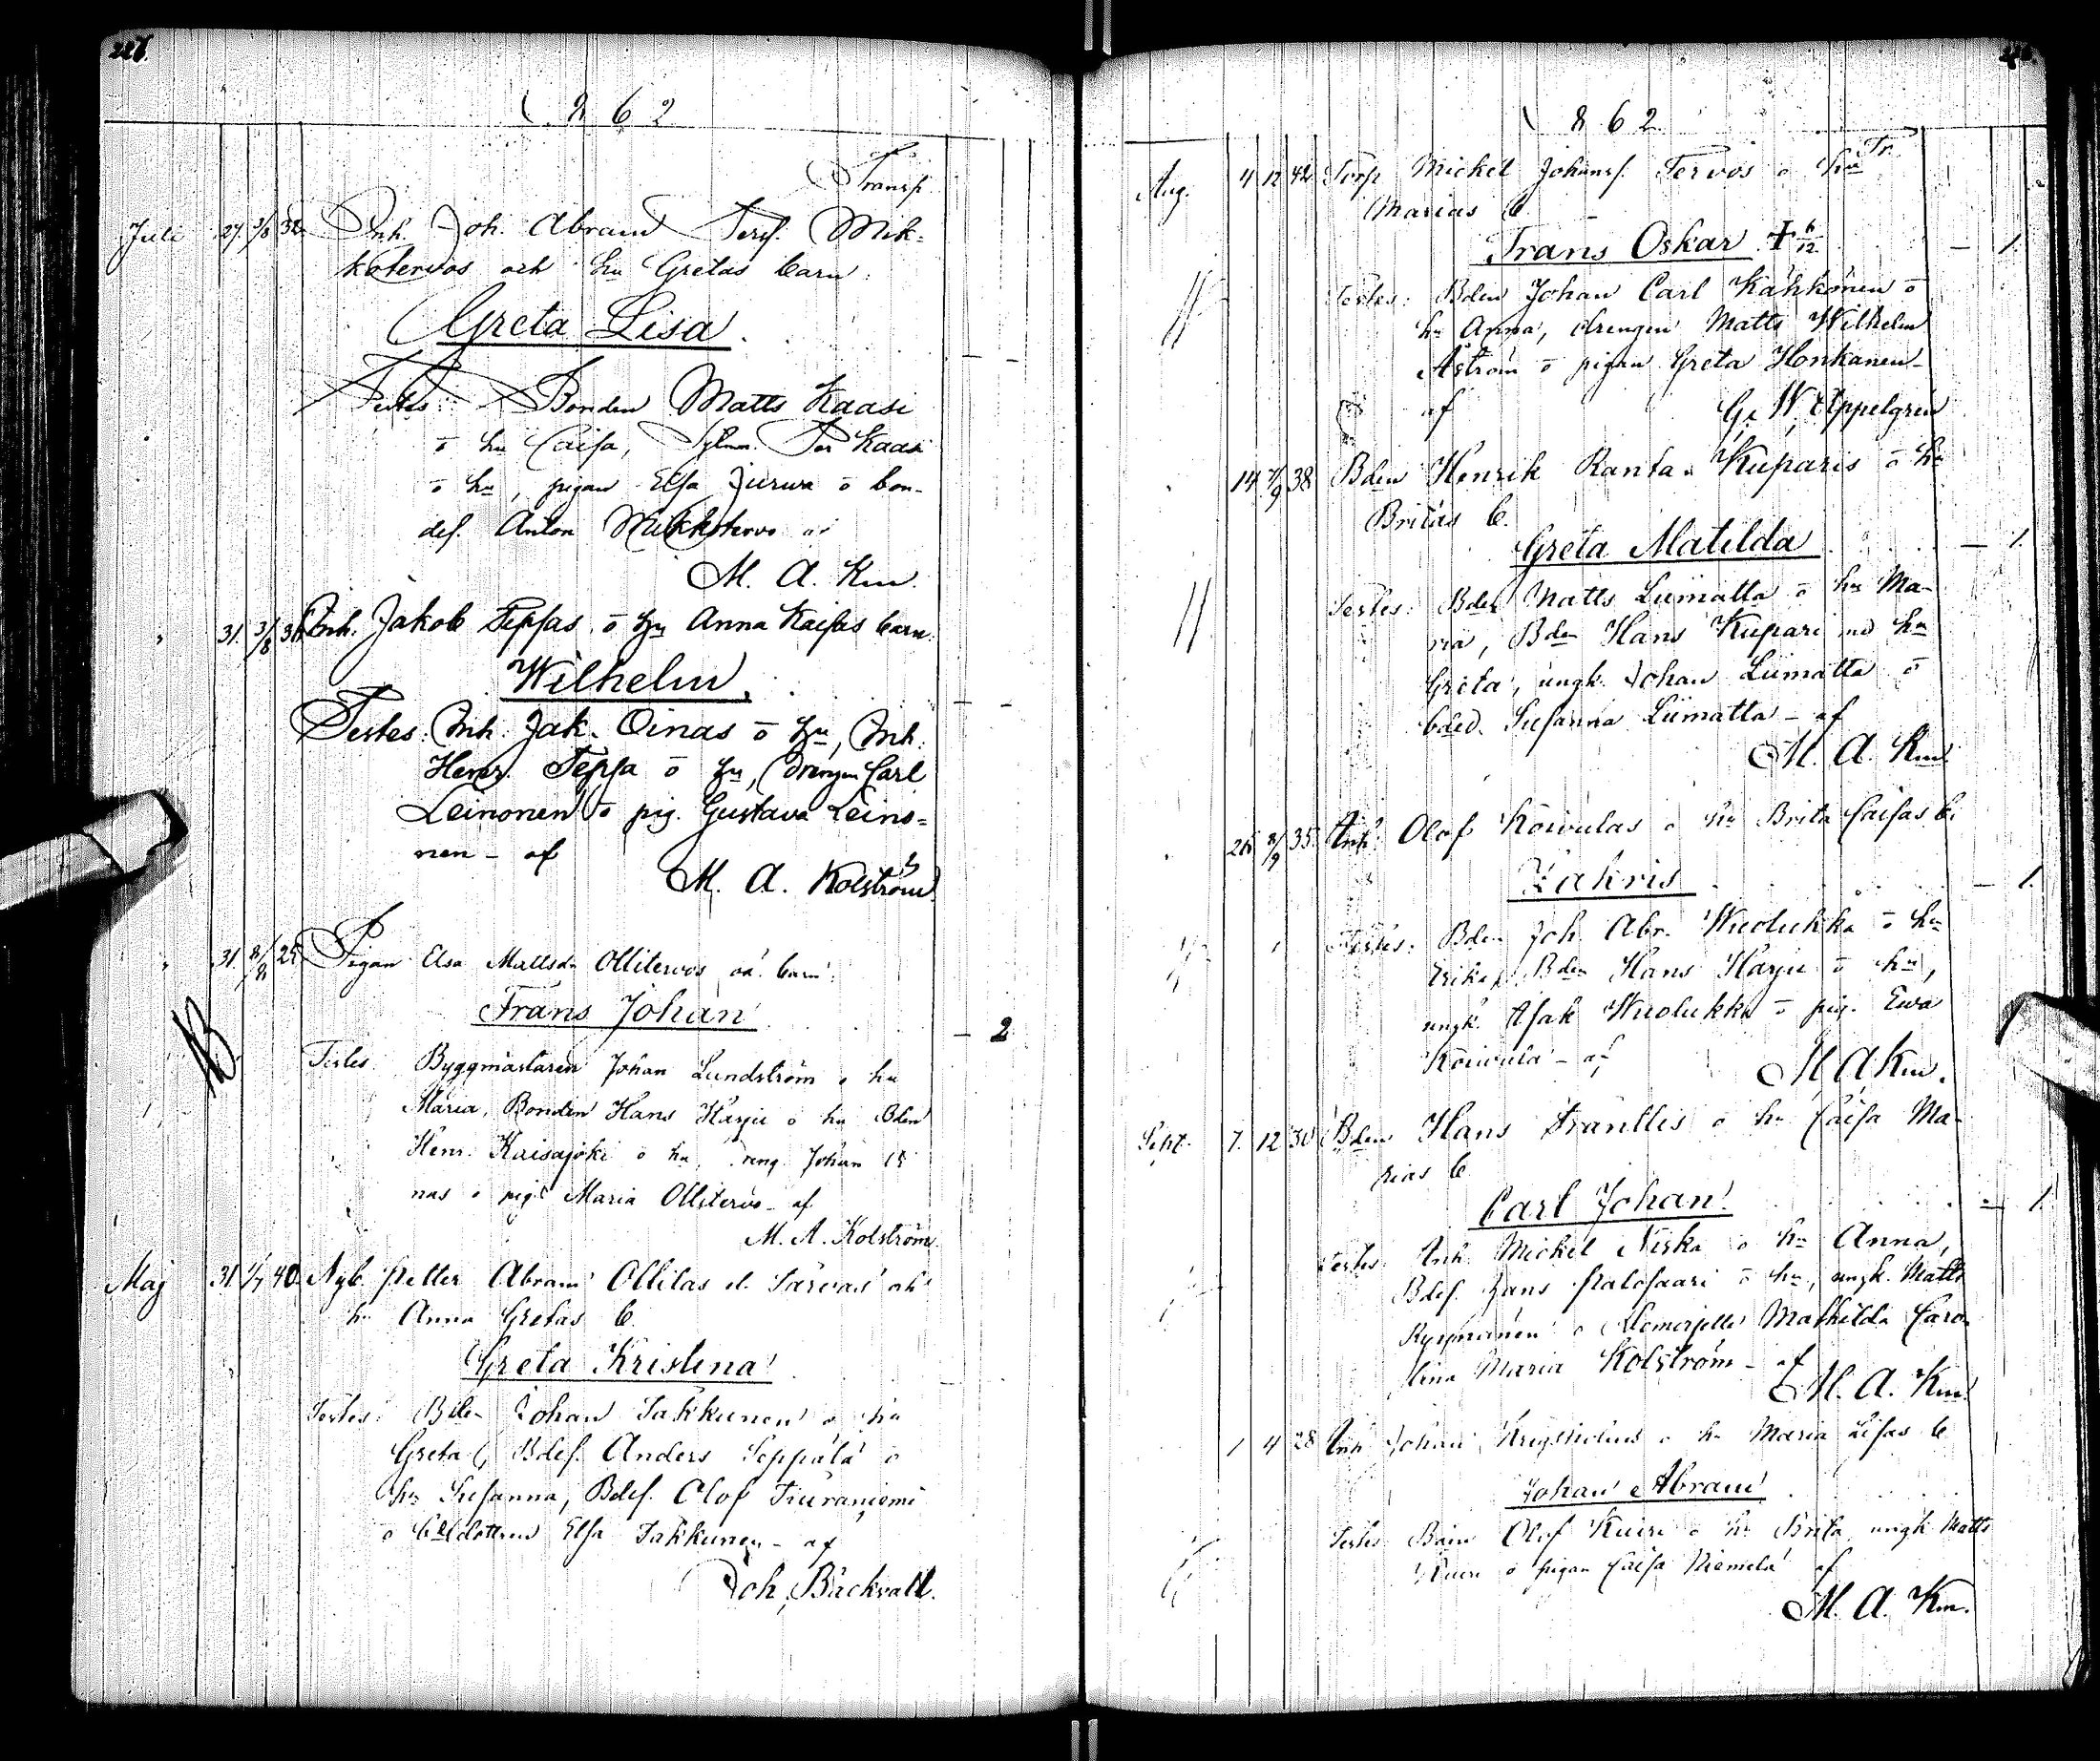 1862
Transp.
Juli 27. 3/8 32 Inh. Joh. Abram Mik-
kotervos och hu Gretas barn
Greta Lisa.
Testes: Bonden Matts Kaasi
o hu Caisa, Per Kaasi
o hu, pigan Elsa Jurwa o bon-
des. Anton Mikkotervo af
M. A. Km.
" 31. 3/8 Inh. Jakob Tepsas o hu Anna Kaisas barn.
Wilhelm.
Testes: Inh. Jak. Oinas o hu, Inh.
Henr. Tepsa o hu, drengen Carl
Leinonen o pig. Gustava Leino-
nen - af
M. A. Kolström
" 31. 8/8 25 Pigan Elsa Mattsdr Ollitervos oä. barn.
Frans Johan
- 2
Testes: Byggmästaren Johan Lundström o hu
Maria, Bonden Hans Harju o hu Bden
Henr. Kaisajoki o hu, dreng. Johan
nas o pig. Maria Ollitervo - af
M. A. Kolström.
Maj 31. 1/7 40. Nyb. Petter Abram Ollilas el. Särvas och
hu Anna Gretas b.
Greta Kristina
Testes: Bden Johan Takkunen o hu
Greta, Bdes. Anders Seppälä o
hu Susanna, Bdes. Olof Tiuraniemi
o bdedottren Elsa Takkunen - af
Joh. Bäckvall.
1862
Tr.
Aug. 4 12 42 Torp. Mickel Johanss. Tervos o hu
Marias b.
Frans Oskar † 6/12
- 1.
Testes: Bden Johan Carl Kähkönen o
hu Anna, drengen Matts Wilhelm
Åström o pigan Greta Honkanen -
af G. W. Appelgren
" 14 7/9 38 Bden Henrik Ranta-Kuparis o hu
Britas b.
Greta Matilda
- 1.
Testes: Bden Matts Liimatta o hu Ma-
ria, Bden Hans Kupari md hu
Greta, ungk. Johan Liimatta o
bded. Susanna Liimatta - af
M. A. Km.
" 26 8/9 35 Inh. Olof Koivulas o hu Brita Caisas b.
Zakris
- 1.
Testes: Bden Joh. Abr. Wuolukka o hu
Erika, Bden Hans Harju o hu,
ungk. Isak Wuolukka o pig. Ewa
Koivula - af
M A Km.
Sept. 7. 12 30 Bden Hans Tranttis o hu Caisa Ma-
rias b.
Carl Johan
- 1.
Testes: Inh. Mickel Niska o hu Anna,
Bdes. Hans Palosaari o hu, ungk. Matts
Ryynänen o Demoiselle Mathilda Caro-
lina Maria Kolström - af
M. A. Km.
1 4 28 Inh. Johan o hu Maria Lisas b
Johan Abram
Testes: Bden Olof Kuiri o hu Brita, ungk. Matts
Kuiri o pigan Caisa Niemelä af
M. A. Km.